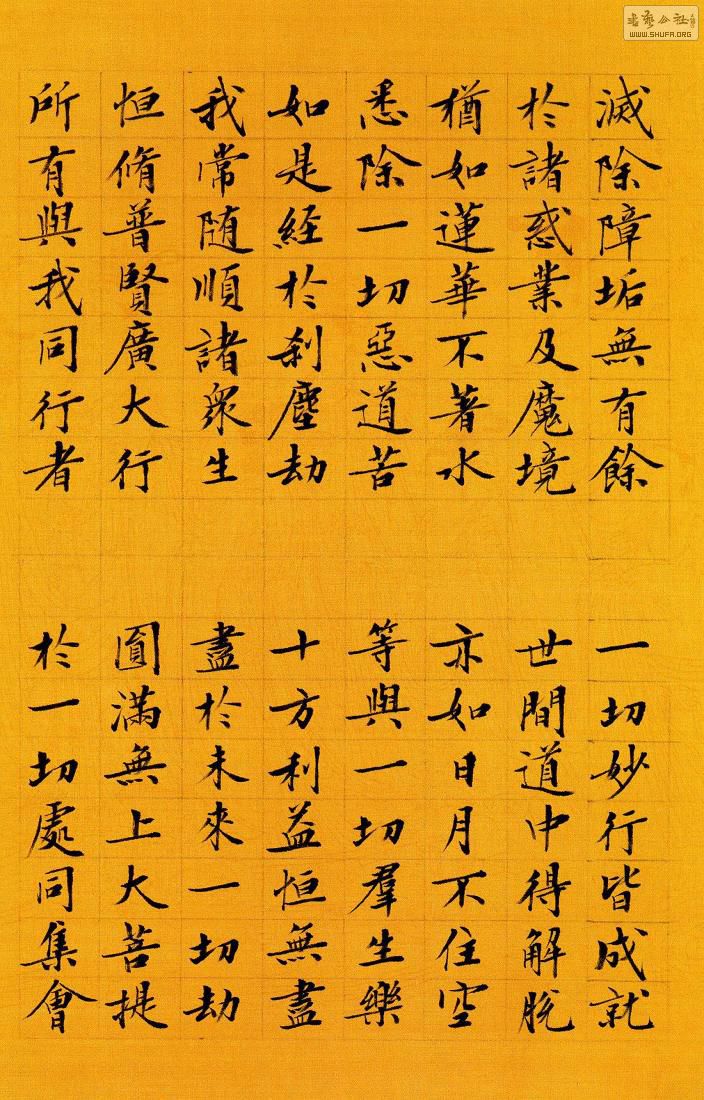 書藝公社
WWW.SHUFA.ORG
滅除障垢無有餘
一切妙行皆成就
於諸惑業及魔境
世間道中得解脫
猶如蓮華不著水
亦如日月不住空
悉除一切惡道苦
等與一切羣生樂
如是經於剎塵劫
十方利益恒無盡
我常随順諸衆生
盡於未來一切劫
恒脩普賢廣大行
圓滿無上大菩提
所有與我同行者
於一切處同集會